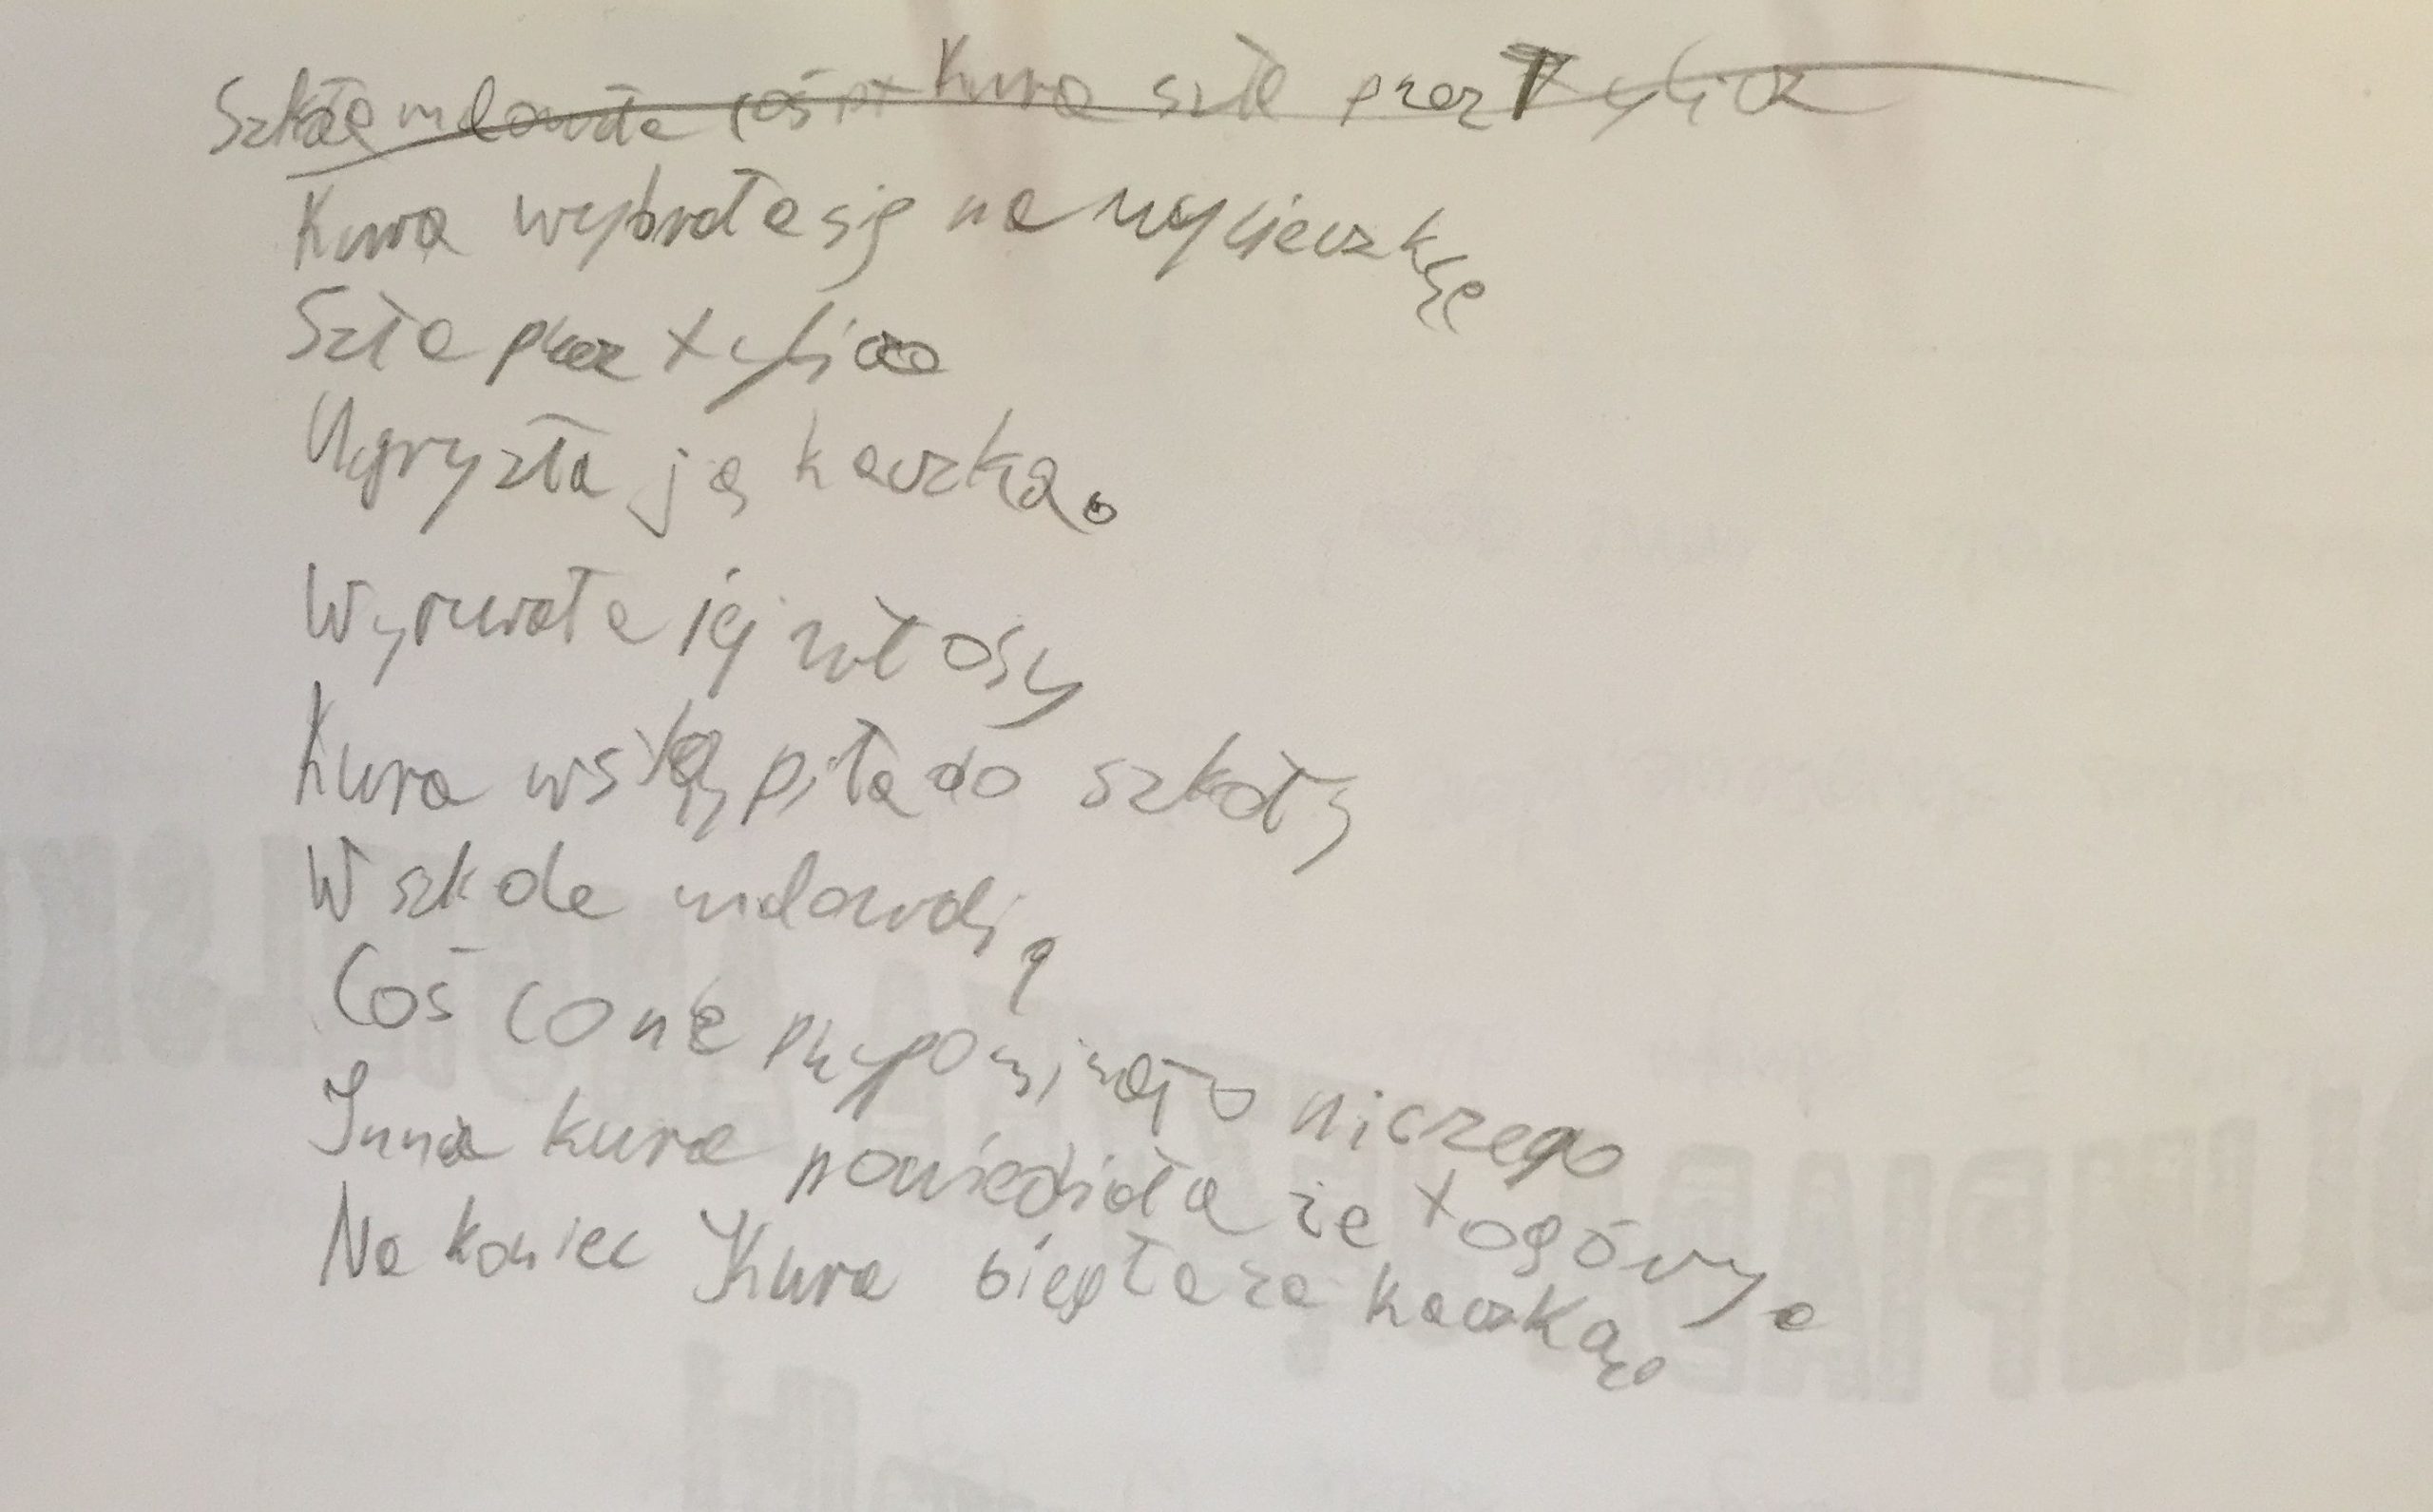 Szkoła malowała coś pt Kura szła przez Tylicz
Kura wybrała się na wycieczkę
Szła przez tylicz
Ugryzła ją kaczka.
Wyrwała jej włosy
Kura wstąpiła do szkoły
W szkole malowali
Coś co nie przypominało niczego
Inna kura powiedziała że to góry.
Na koniec Kura biegła za kaczką.